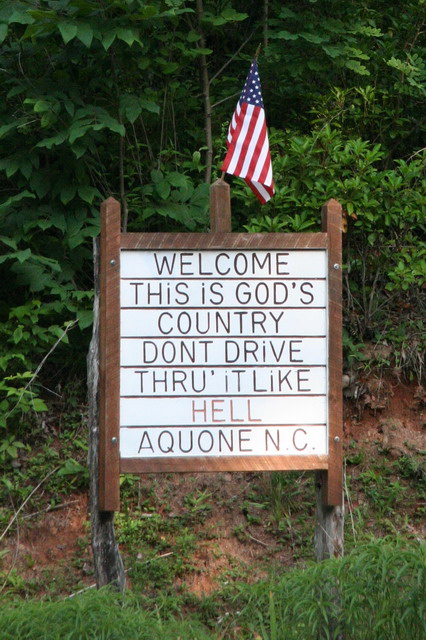 WELCOME
THiS iS GOD'S
COUNTRY
DONT DRiVE
THRU' iT LiKE
HELL
AQUONE N.C.